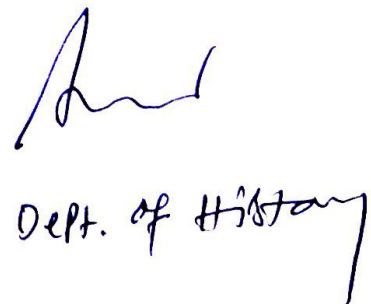 Dept. of History